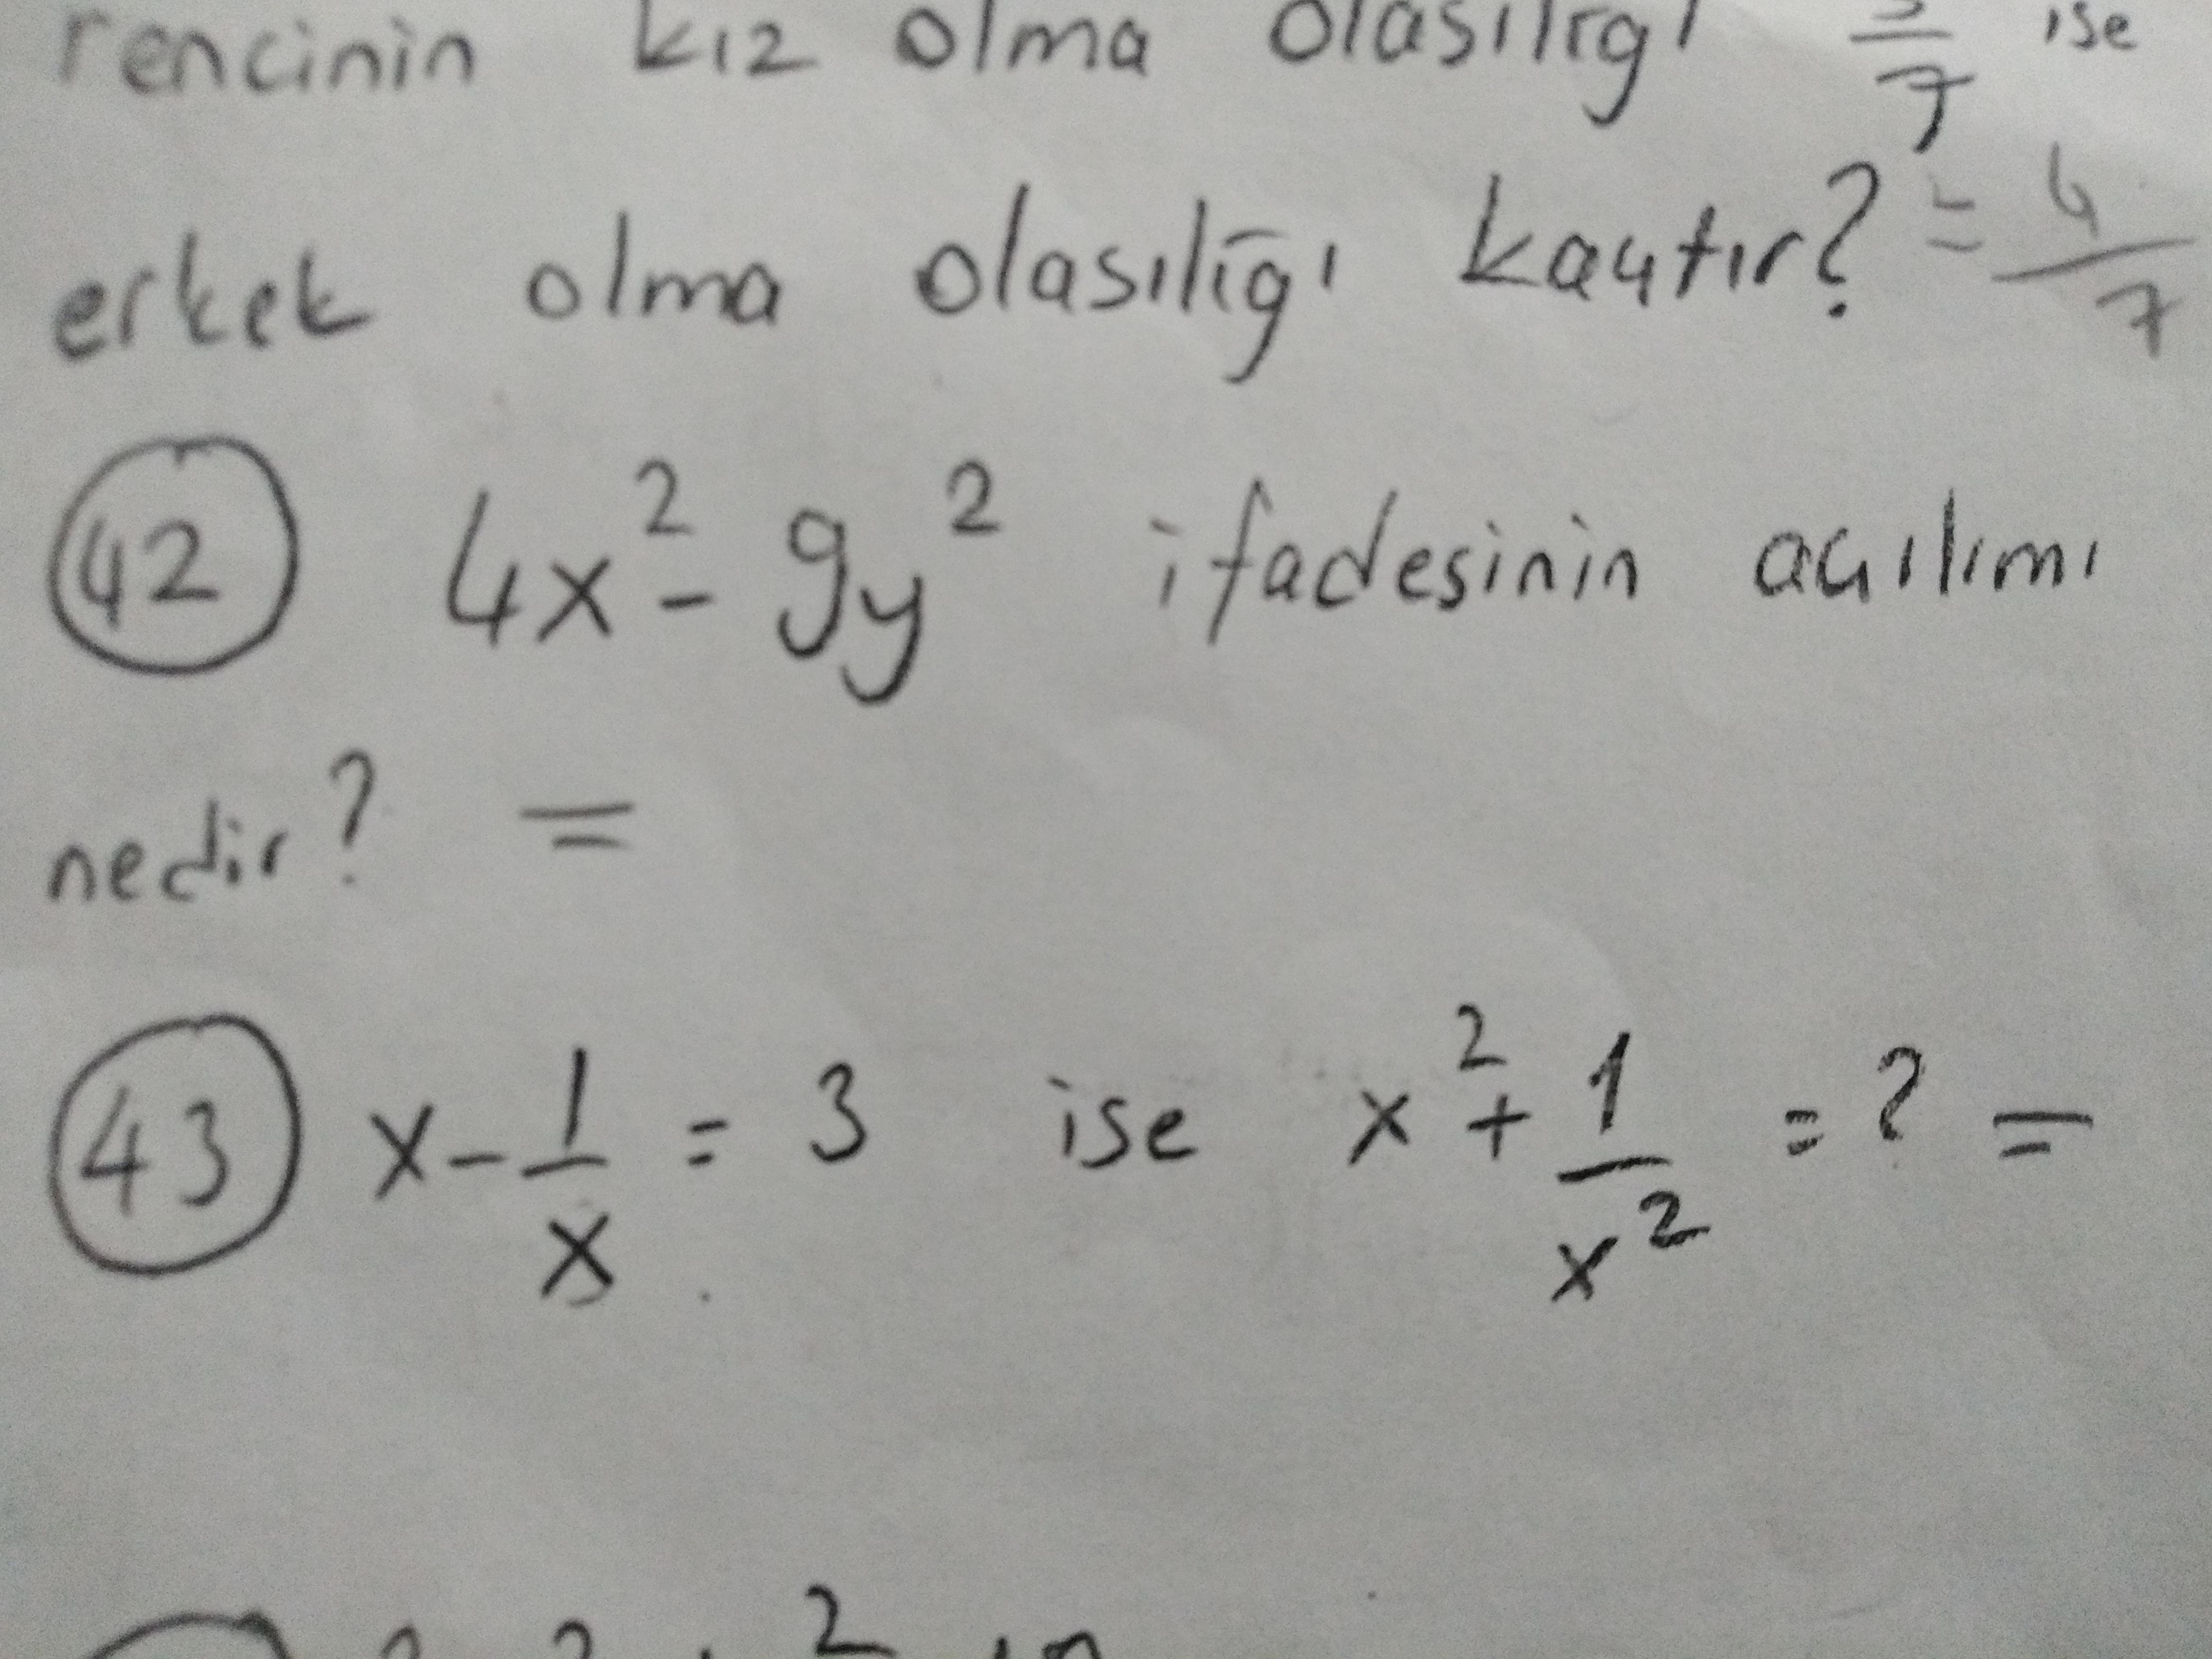 rencinin kız olma olasılığı 3/7 ise
erkek olma olasılığı kaçtır? = 4/7
42 4x² - 9y² ifadesinin açılımı
nedir? =
43 x - 1/x = 3 ise x² + 1/x² = ? =